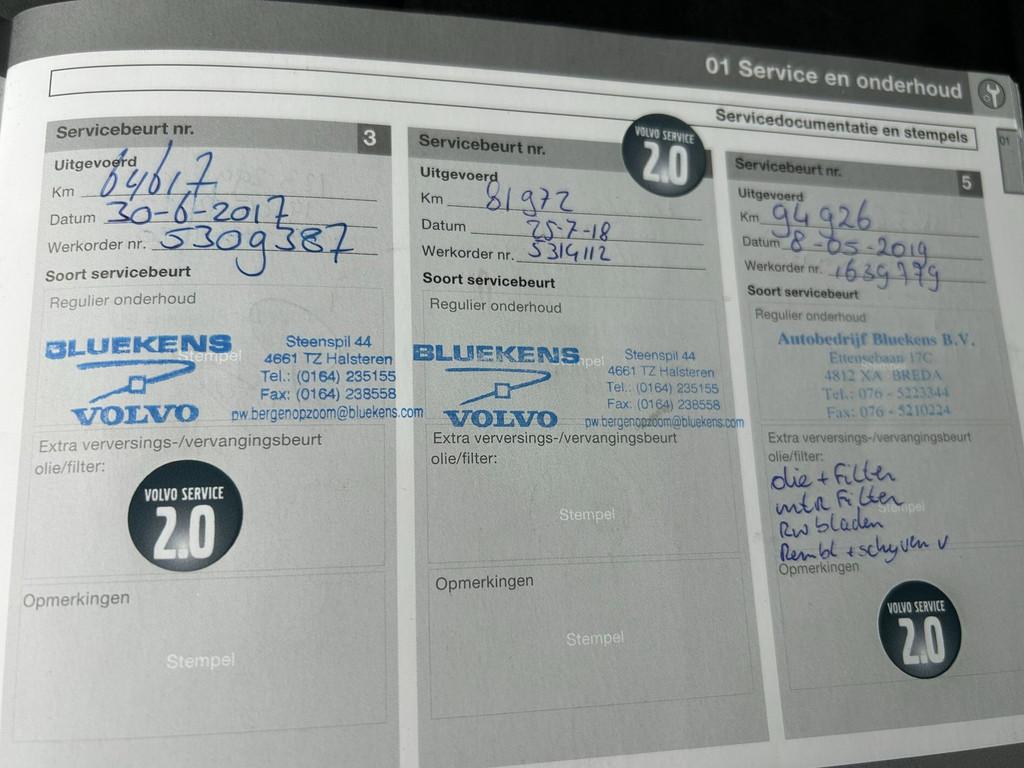 01 Service en onderhoud
Servicedocumentatie en stempels
01
Servicebeurt nr. 3
Uitgevoerd
Km 64617
Datum 30-6-2017
Werkorder nr. 5309387
Soort servicebeurt
Regulier onderhoud
Stempel
BLUEKENS
VOLVO
Steenspil 44
4661 TZ Halsteren
Tel.: (0164) 235155
Fax: (0164) 238558
pw.bergenopzoom@bluekens.com
Extra verversings-/vervangingsbeurt
olie/filter:
VOLVO SERVICE
2.0
Opmerkingen
Stempel
Servicebeurt nr.
VOLVO SERVICE
2.0
Uitgevoerd
Km 81972
Datum 25-7-18
Werkorder nr. 5314112
Soort servicebeurt
Regulier onderhoud
BLUEKENS
VOLVO
Steenspil 44
4661 TZ Halsteren
Tel.: (0164) 235155
Fax: (0164) 238558
pw.bergenopzoom@bluekens.com
Extra verversings-/vervangingsbeurt
olie/filter:
Stempel
Opmerkingen
Stempel
Servicebeurt nr. 5
Uitgevoerd
Km 94926
Datum 8-05-2019
Werkorder nr. 1639779
Soort servicebeurt
Regulier onderhoud
Autobedrijf Bluekens B.V.
Ettensebaan 17C
4812 XA BREDA
Tel.: 076 - 5223344
Fax: 076 - 5210224
Extra verversings-/vervangingsbeurt
olie/filter:
olie + Filter
intR Filter
Rw bladen
Rembl + schyven v
Opmerkingen
VOLVO SERVICE
2.0